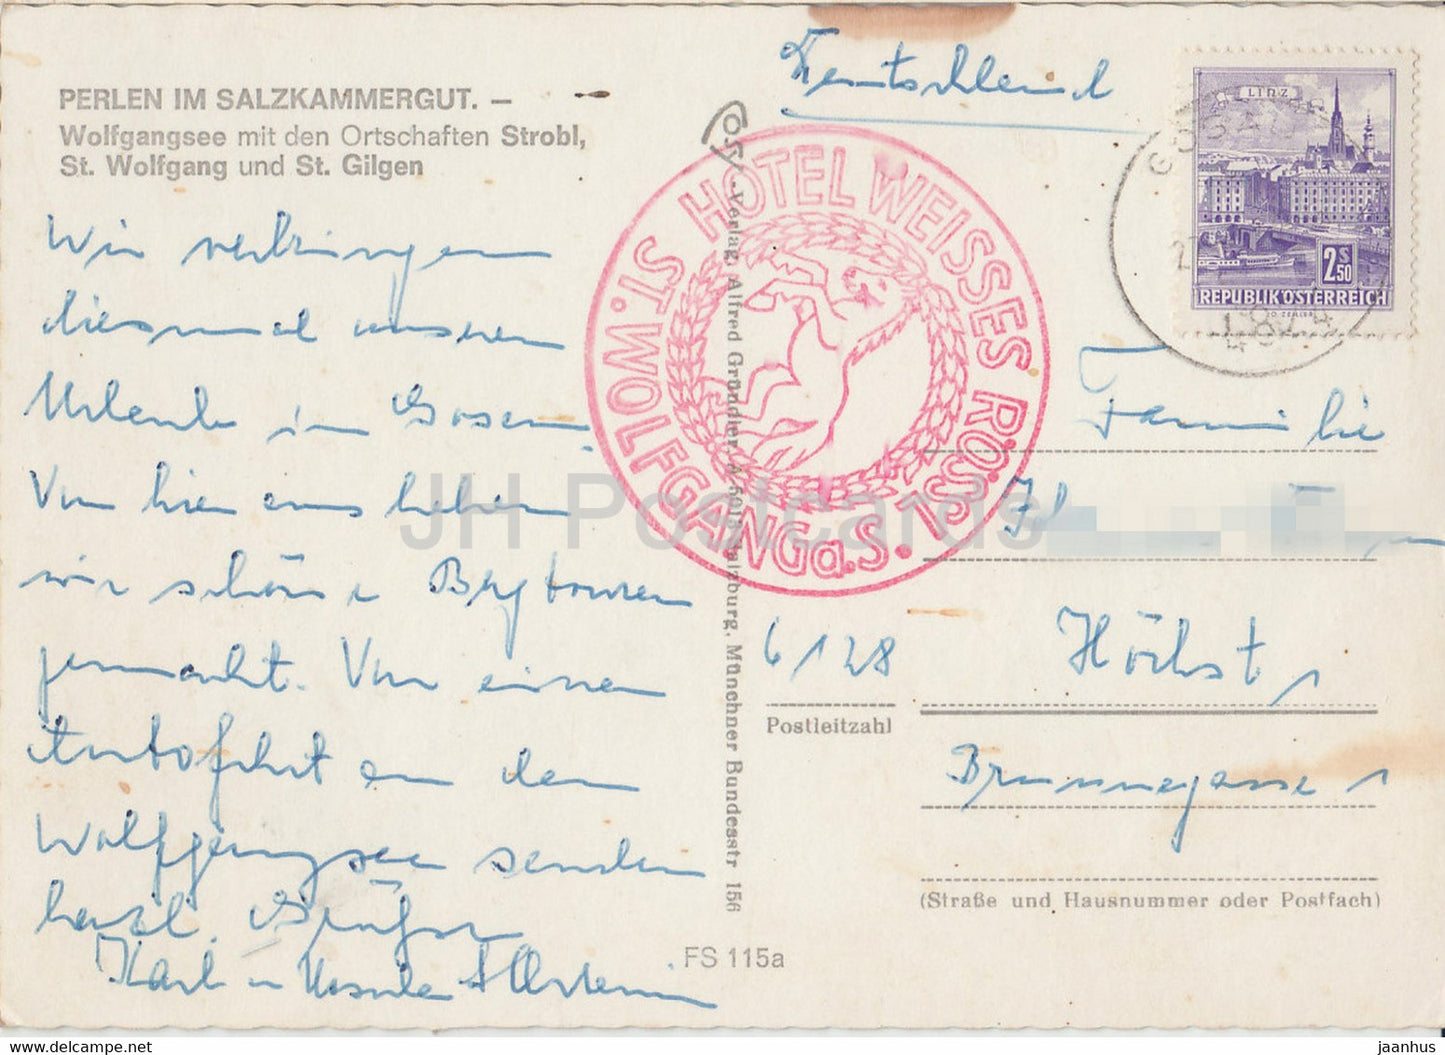 PERLEN IM SALZKAMMERGUT. —
Wolfgangsee mit den Ortschaften Strobl,
St. Wolfgang und St. Gilgen
Wir verbringen
diesmal unseren
Urlaub in Gosau.
Von hier aus haben
wir schöne Bergtouren
gemacht. Von einer
Autofahrt an den
Wolfgangsee senden
herzl. Grüße
Karl u. Ursula
Verlag Alfred Gründler, A 5018 Salzburg, Münchner Bundesstr 156
FS 115a
HOTEL WEISSES RÖSSL
ST. WOLFGANG a. S.
Deutschland
LINZ
2 S 50
REPUBLIK ÖSTERREICH
GOSAU
4824
Familie
6128 Höchst,
Postleitzahl
Brunnegasse 1
(Straße und Hausnummer oder Postfach)
JH Postcards
www.delcampe.net
jaanhus